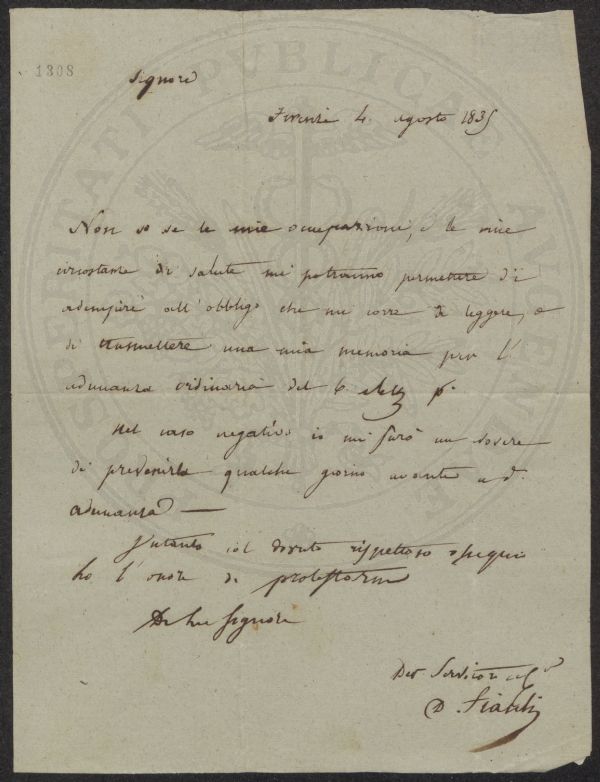 1308
Signore
Firenze 4. agosto 1835
Non so se le mie occupazioni, e le mie
circostanze di salute mi potranno permettere di
adempire all'obbligo che mi corre di leggere, o
di trasmettere una mia memoria per l'
adunanza ordinaria del 6
Nel caso negativo io mi farò un dovere
di prevenirla qualche giorno avanti a d.
adunanza —
Intanto col dovuto rispettoso ossequio
ho l'onore di protestarmi
Di Lei Signore
Dev Servitore
D.
PROSPERITATI PUBLICAE AUGENDAE